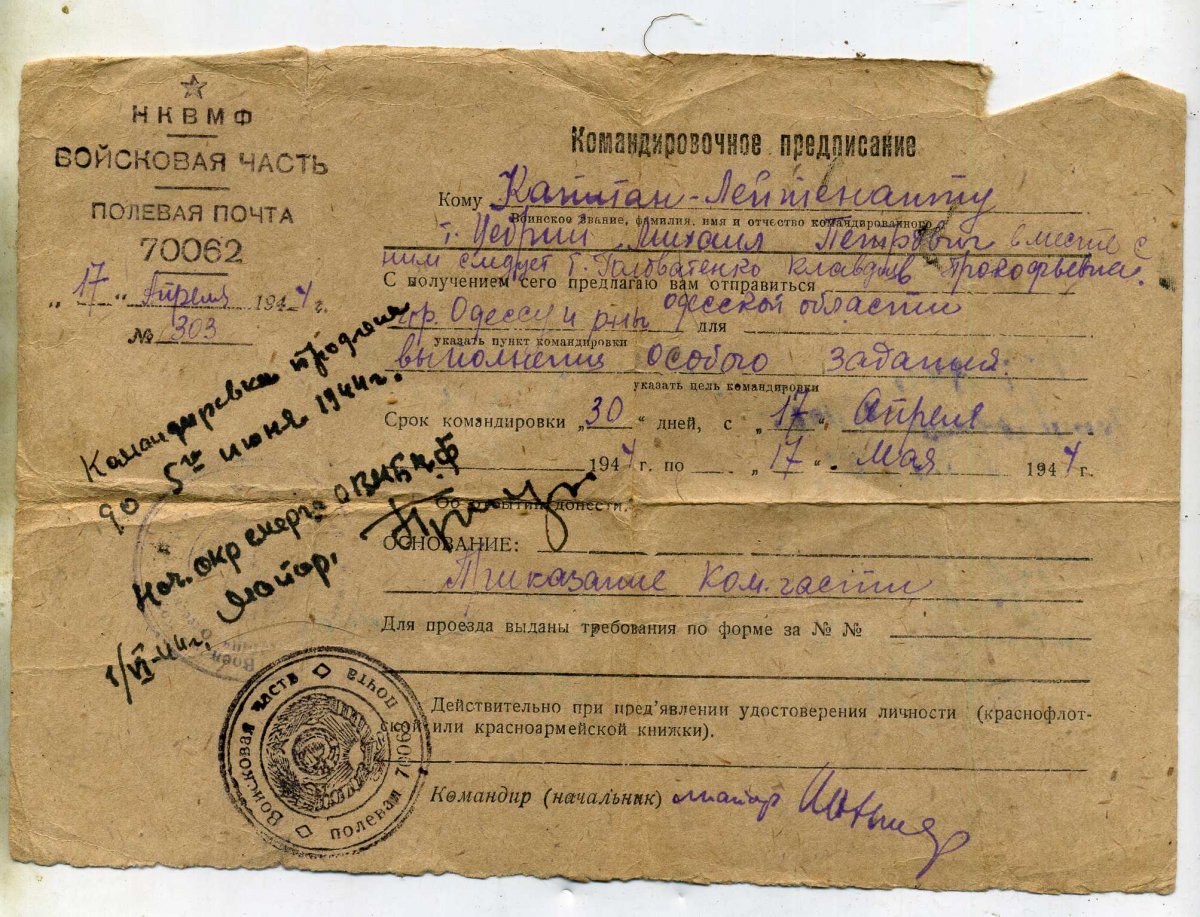 НКВМФ
ВОЙСКОВАЯ ЧАСТЬ
ПОЛЕВАЯ ПОЧТА
70062
„17“ Апреля 1944 г.
№ 303
Командировочное предписание
Кому Капитан-Лейтенанту
Воинское звание, фамилия, имя и отчество командированного
т. Михаил Петрович вместе с
ним следует т. Головатенко Клавдия Прокофьевна.
С получением сего предлагаю вам отправиться
гор. Одессу и р-ны Одесской области
для
указать пункт командировки
выполнения особого задания.
указать цель командировки
Срок командировки „30“ дней, с „17“ Апреля
1944 г. по „17“ Мая 1944 г.
донести.
ОСНОВАНИЕ:
Приказание Ком. части
Для проезда выданы требования по форме за № №
Действительно при пред'явлении удостоверения личности (краснофлот-
ской или красноармейской книжки).
Командир (начальник) майор
Командировка продлена
до 5го июня 1944г.
Нач.
Майор.
1/VI-44г.
Войсковая часть
полевая почта 70062